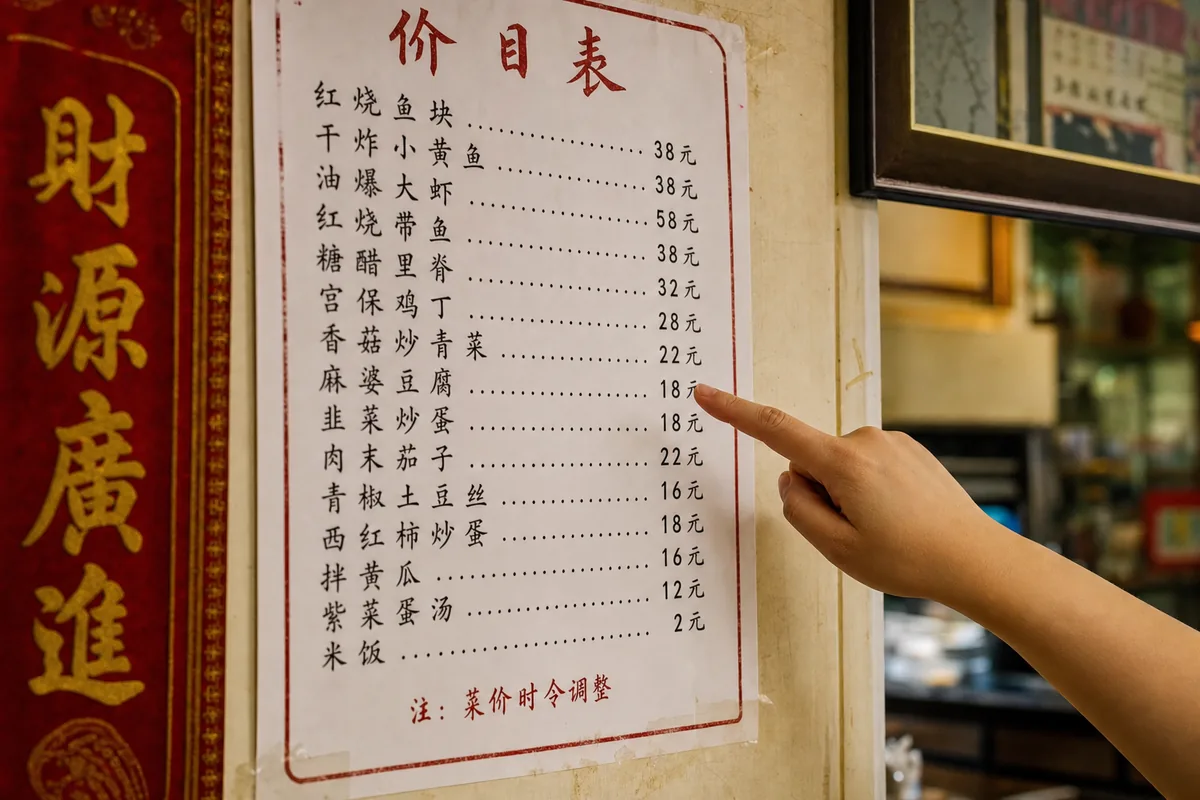 財源廣進
价目表
红烧鱼块 .................... 38元
干炸小黄鱼 .................... 38元
油爆大虾 .................... 58元
红烧带鱼 .................... 38元
糖醋里脊 .................... 32元
宫保鸡丁 .................... 28元
香菇炒青菜 .................... 22元
麻婆豆腐 .................... 18元
韭菜炒蛋 .................... 18元
肉末茄子 .................... 22元
青椒土豆丝 .................... 16元
西红柿炒蛋 .................... 18元
拌黄瓜 .................... 16元
紫菜蛋汤 .................... 12元
米饭 .................... 2元
注：菜价时令调整